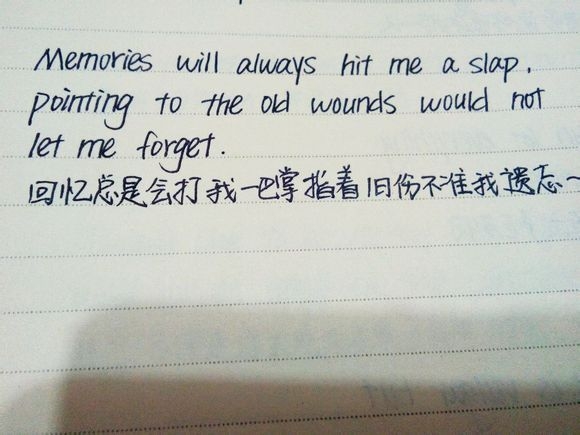 Memories will always hit me a slap,
pointing to the old wounds would not
let me forget.
回忆总是会打我一巴掌指着旧伤不准我遗忘~